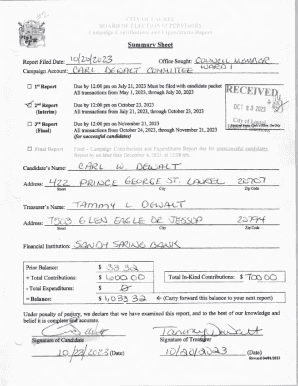 CITY OF LAUREL
BOARD OF ELECTION SUPERVISORS
Campaign Contributions and Expenditures Report
Summary Sheet
Report Filed Date: 10/20/2023 Office Sought: COUNCIL MEMBER WARD 1
Campaign Account: CARL DEWALT COMMITTEE
1st Report Due by 12:00 pm on July 21, 2023 Must be filed with candidate packet
All transactions from May 1, 2023, through July 20, 2023
RECEIVED
2nd Report Due by 12:00 pm on October 23, 2023
(Interim) All transactions from July 21, 2023 through October 23, 2023
OCT 2023
City of Laurel
3rd Report Due by 12:00 pm on November 21, 2023
(Final) All transactions from October 24, through November 21, 2023
(for successful candidates)
Final Report Final - Campaign Contributions and Expenditures Report due for unsuccessful candidates
Candidate's Name: CARL W. DEWALT
Address: 422 PRINCE GEORGE ST. LAUREL 20707
Street City Zip Code
Treasurer's Name: TAMMY L DEWALT
Address: 7503 GLEN EAGLE DR JESSUP 20794
Street City Zip Code
Financial Institution: SANDY SPRING BANK
Prior Balance: $ 33.32
+ Total Contributions: $ 4000.00 Total In-Kind Contributions: $ 700.00
- Total Expenditures: $
= Balance: $ 4033.32 (Carry forward this balance to your next report)
Under penalty of perjury, we declare that we have examined this report, and to the best of our knowledge and
belief it is complete and accurate.
Signature of Candidate Signature of Treasurer
10/23/2023 (Date) 10/20/2023 (Date)
Revised 04/01/2023